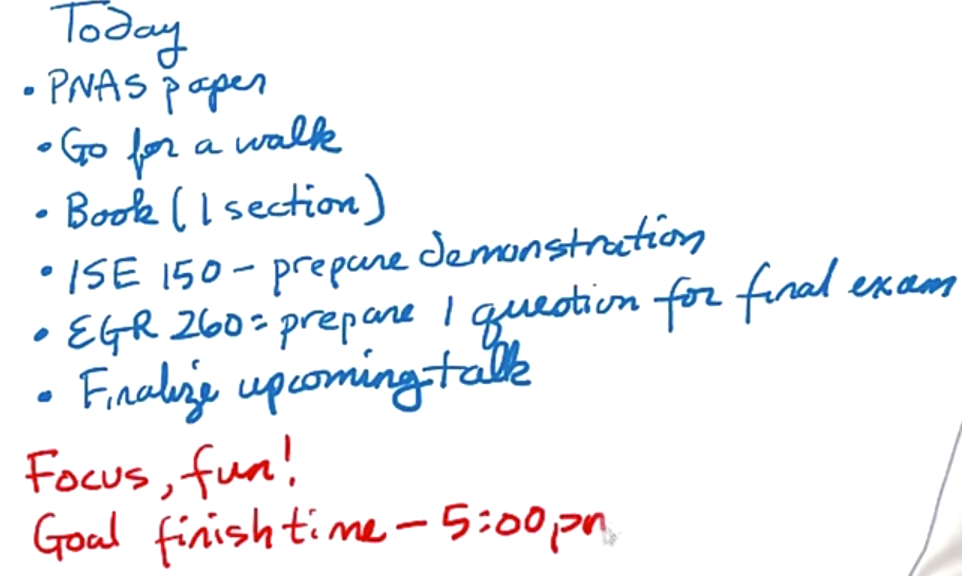 Today
• PNAS paper
• Go for a walk
• Book (1 section)
• ISE 150 - prepare demonstration
• EGR 260: prepare 1 question for final exam
• Finalize upcoming talk
Focus, fun!
Goal finish time - 5:00 pm